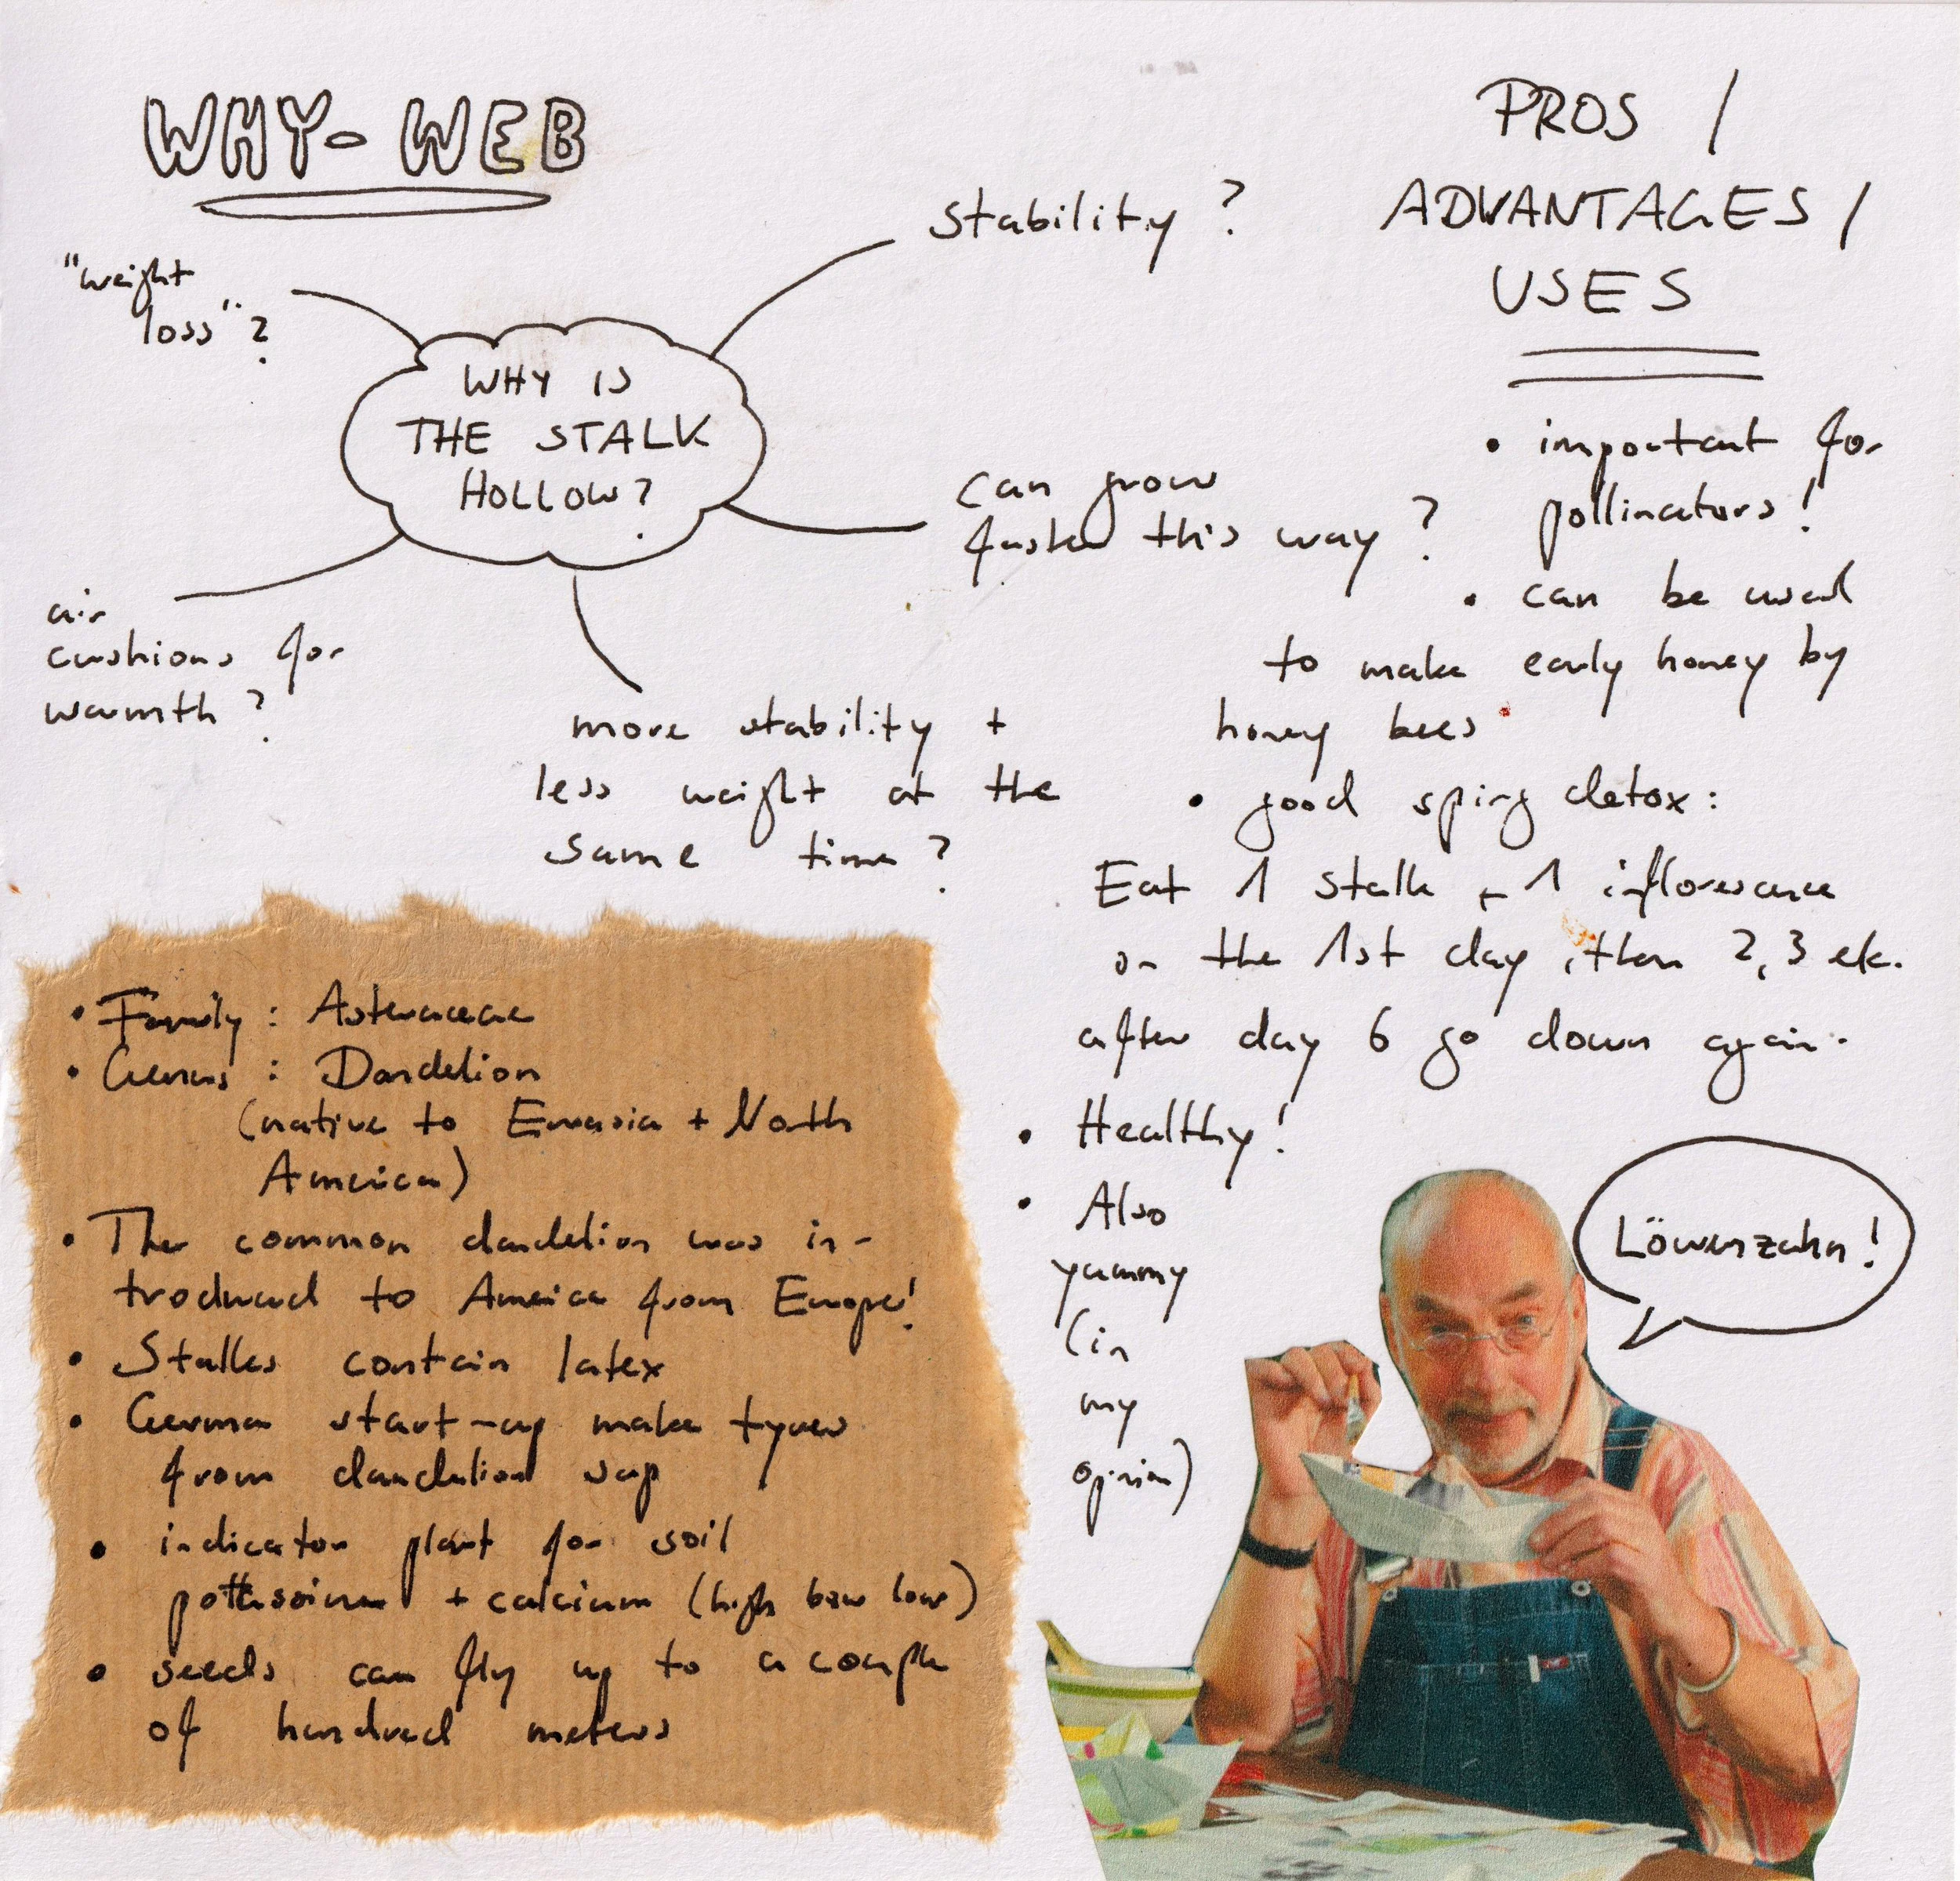 WHY-WEB
"weight
loss"?
stability?
WHY IS
THE STALK
HOLLOW?
can grow
faster this way?
air
cushions for
warmth?
more stability +
less weight at the
same time?
PROS /
ADVANTAGES /
USES
• important for
pollinators!
• can be used
to make early honey by
honey bees
• good spirg detox:
Eat 1 stalk + 1 inflorescence
on the 1st day, then 2, 3 etc.
after day 6 go down again.
• Healthy!
• Also
yummy
(in
my
opinion)
Löwenzahn!
• Family: Asteraceae
• Genus: Dandelion
(native to Eurasia + North
America)
• The common dandelion was in-
troduced to America from Europe!
• Stalks contain latex
• German start-up make tyres
from dandelion sap
• indicator plant for soil
+ calcium (high low)
• seeds can fly up to a couple
of hundred meters